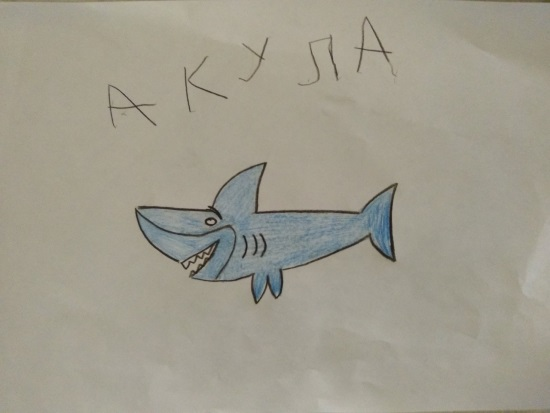 АКУЛА